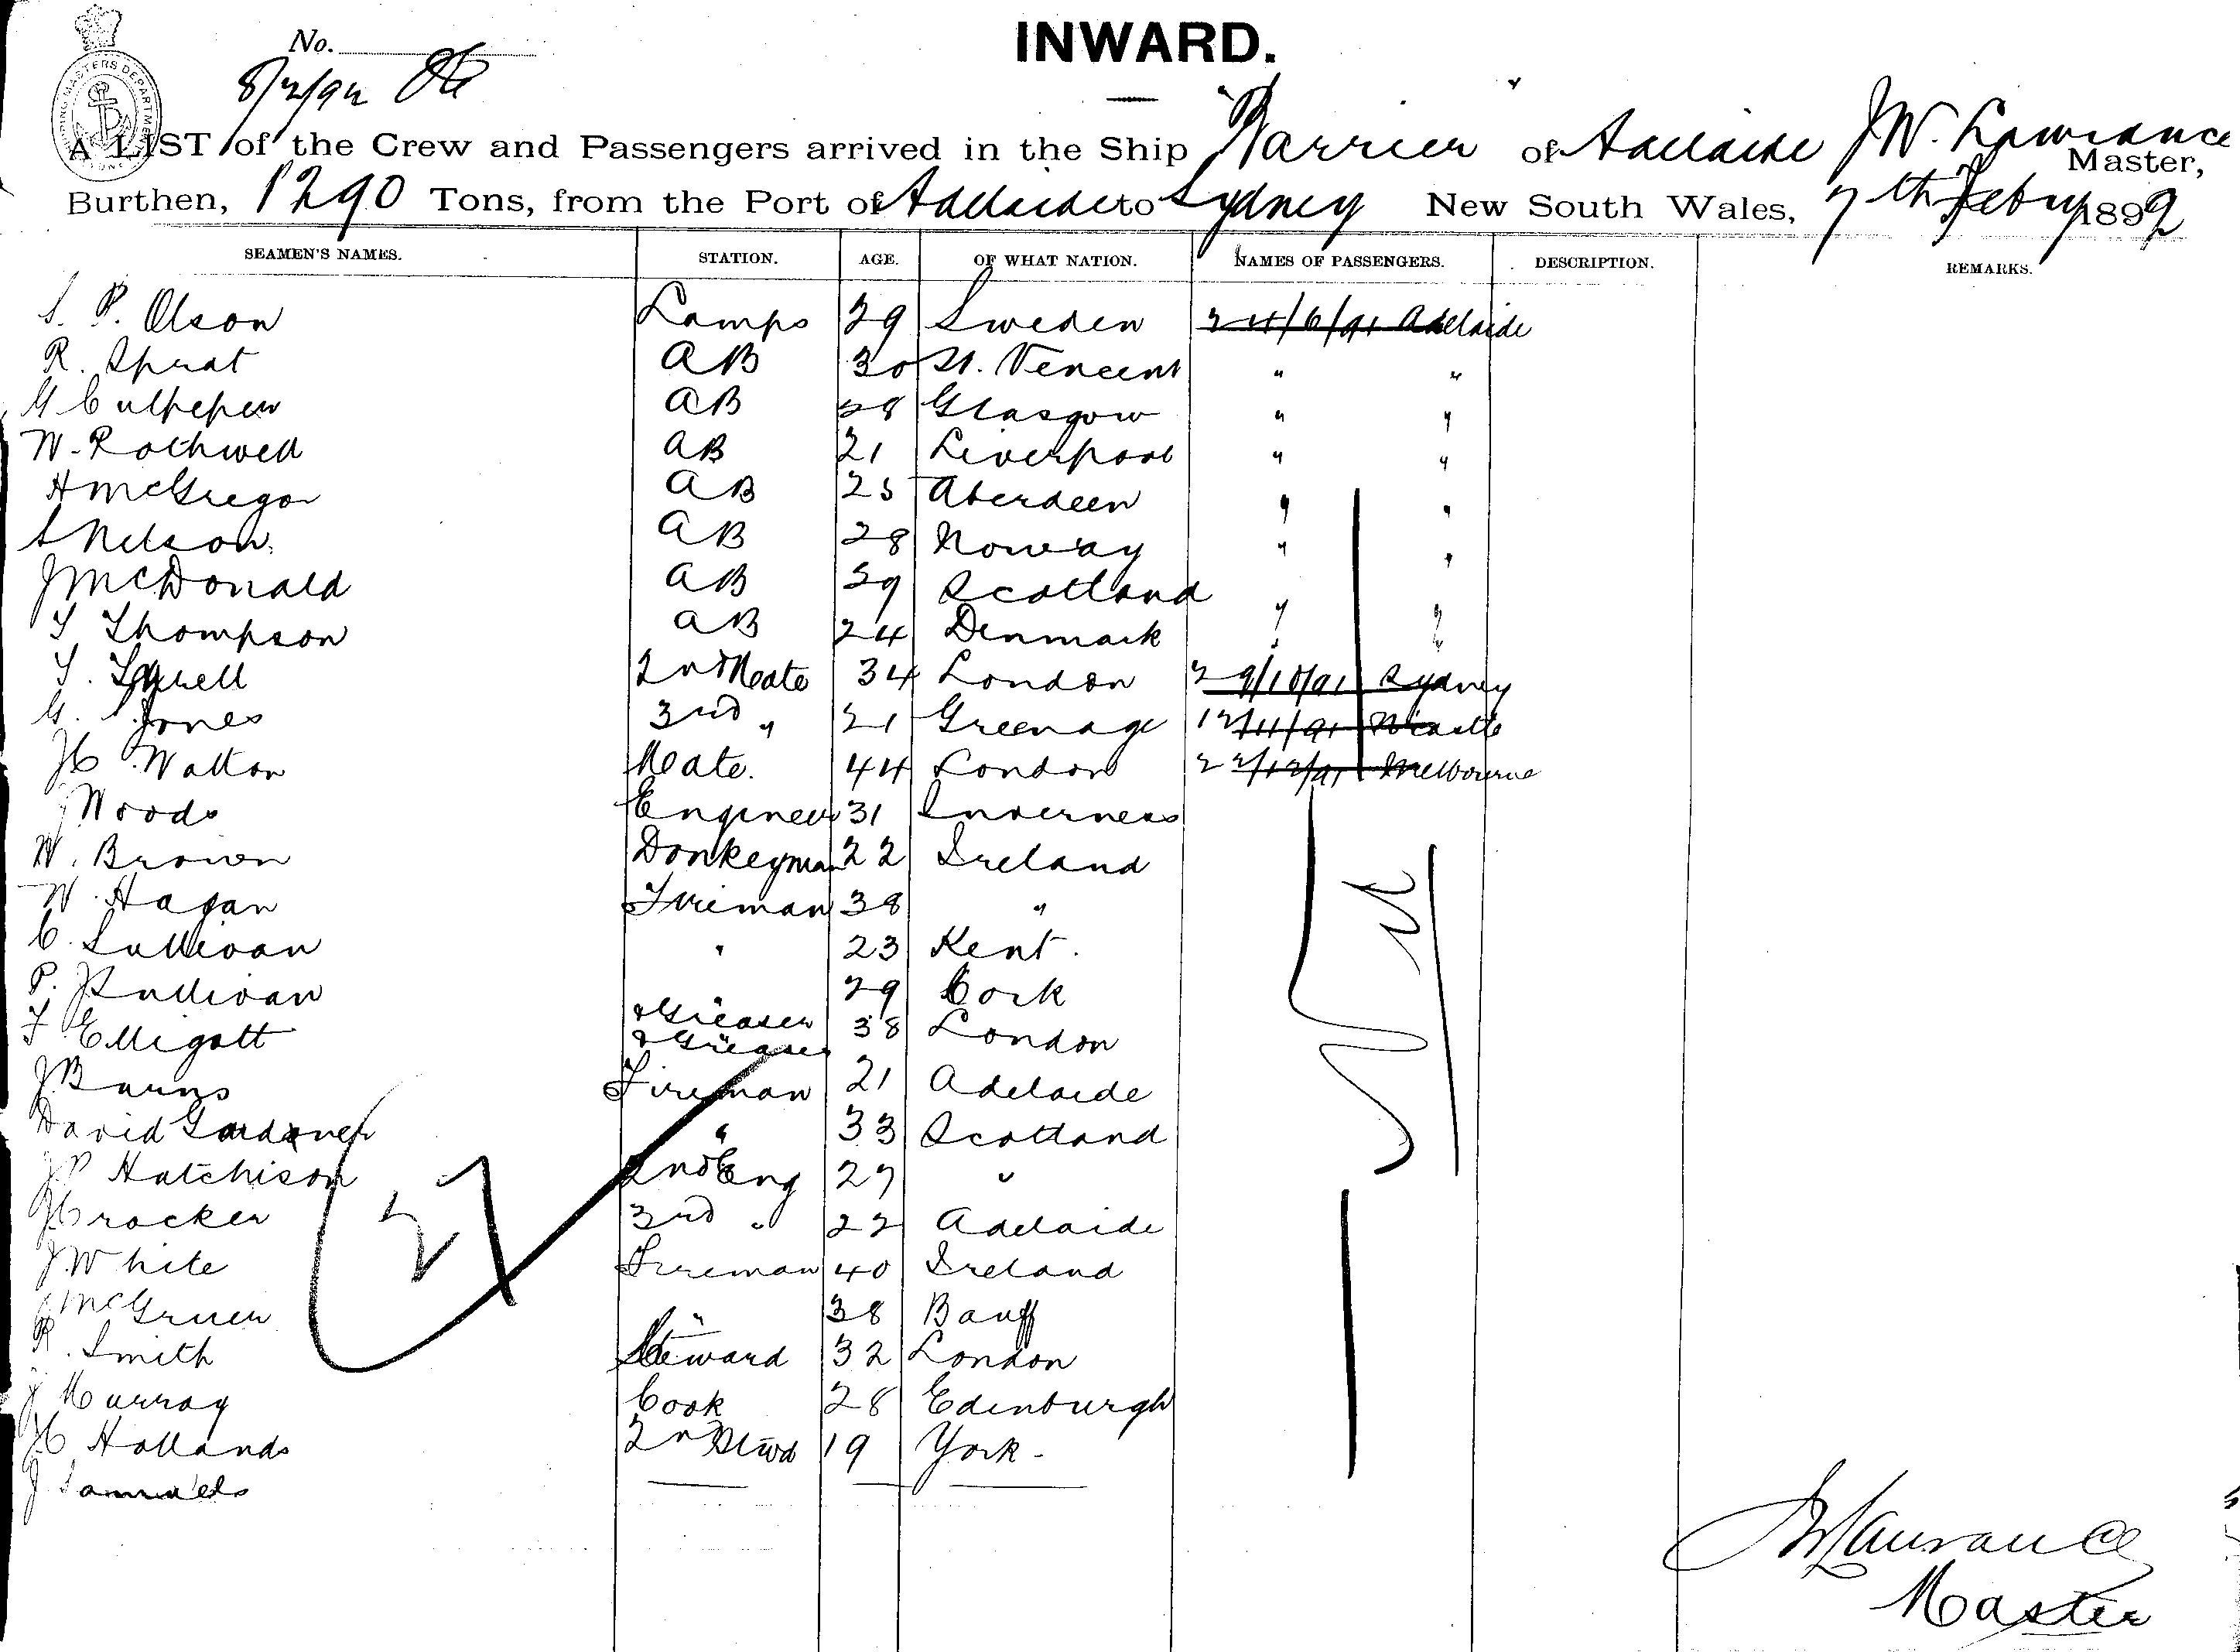 INWARD.
No.
8/2/92
SHIPPING MASTERS DEPARTMENT
A LIST of the Crew and Passengers arrived in the Ship "Barrier" of Adelaide J W. Lawrance Master,
Burthen, 1290 Tons, from the Port of Adelaide to Sydney New South Wales, 7th Febry 1892
SEAMEN'S NAMES. STATION. AGE. OF WHAT NATION. NAMES OF PASSENGERS. DESCRIPTION. REMARKS.
S. P. Olson Lamps 29 Sweden 24/6/91 Adelaide
R. Sprat AB 30 St. Vencent " "
G Culpeper AB 28 Glasgow " "
W. Rothwell AB 21 Liverpool " "
H McGregor AB 25 Aberdeen " "
A Nelson AB 28 Norway " "
J McDonald AB 29 Scotland " "
T Thompson AB 24 Denmark " "
T. Tyrell 2nd Mate 34 London 29/10/91 Sydney
G. Jones 3rd " 21 Greenage 12/11/91 Ncastle
H Walton Mate. 44 London 22/12/91 Melbourne
Woods Engineer 31 Inverness
W. Brown Donkeyman 22 Ireland
W. Hagan Fireman 38 "
C. Sullivan " 23 Kent.
P. Sullivan " 29 Cork
T Elligott & Greaser 38 London
& Greaser
J Burns Fireman 21 Adelaide
David Gardner " 33 Scotland
J P Hutchison 2nd Eng 27 "
J Crocker 3rd " 22 Adelaide
J. White Fireman 40 Ireland
J McGruer " 38 Banff
R. Smith Steward 32 London
J Murray Cook 28 Edinburgh
H Hollands 2nd Stwd 19 York -
J Samuels
27
Nil
JW Lawrance
Master